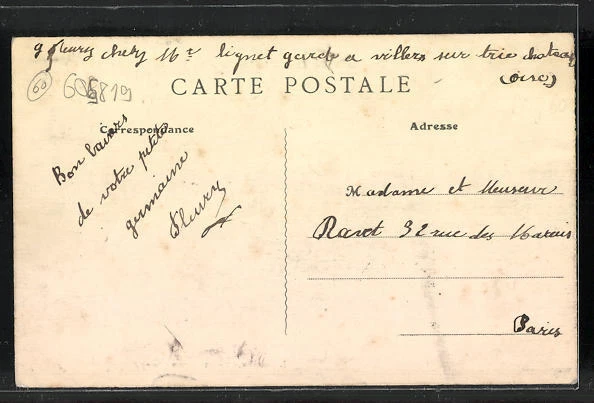 g fleury chez Mr lignet garde a villers sur trie chateau
(oise)
60
606819
CARTE POSTALE
Correspondance
Adresse
Bon baisers
de votre petite
germaine
fleury
Madame et Meuseur
Ravet 32 rue des Marais
Paris